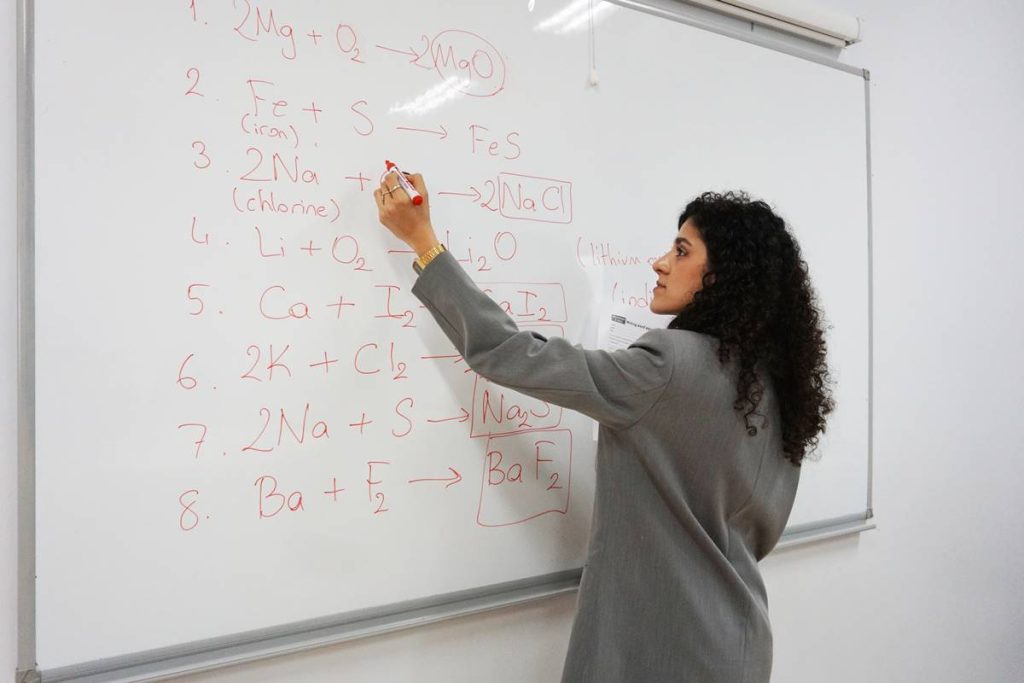 1. 2Mg + O₂ → 2MgO
2. Fe + S → FeS
(iron)
3. 2Na + → 2NaCl
(chlorine)
4. Li + O₂ Li₂O (lithium
5. Ca + I₂ CaI₂
6. 2K + Cl₂ →
7. 2Na + S → Na₂S
8. Ba + F₂ → BaF₂